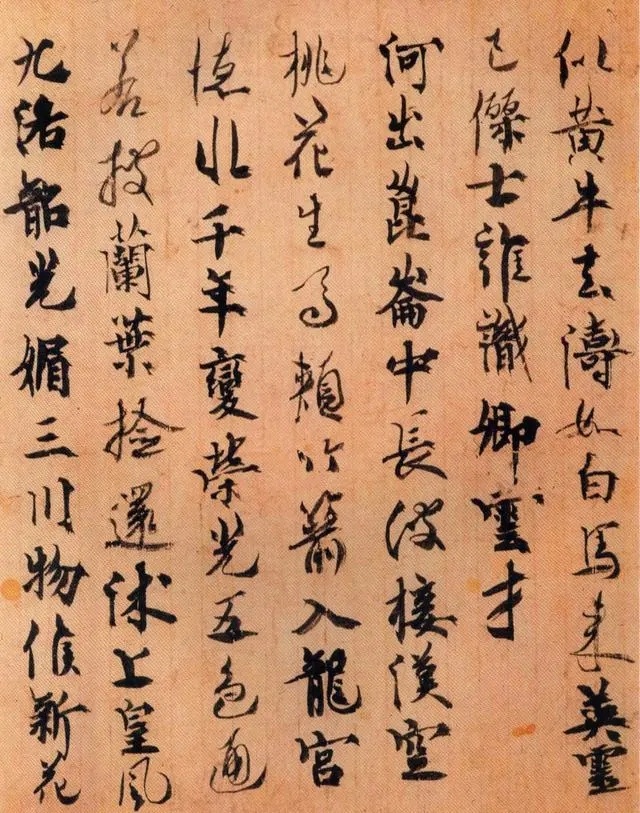 似黄牛去濤如白馬来英靈
已傑士誰識卿雲才
河出崑崙中長波接漢空
桃花生馬頰竹箭入龍宮
德水千年變榮光五色通
若披蘭葉撿還沐上皇風
九洛韶光媚三川物候新花